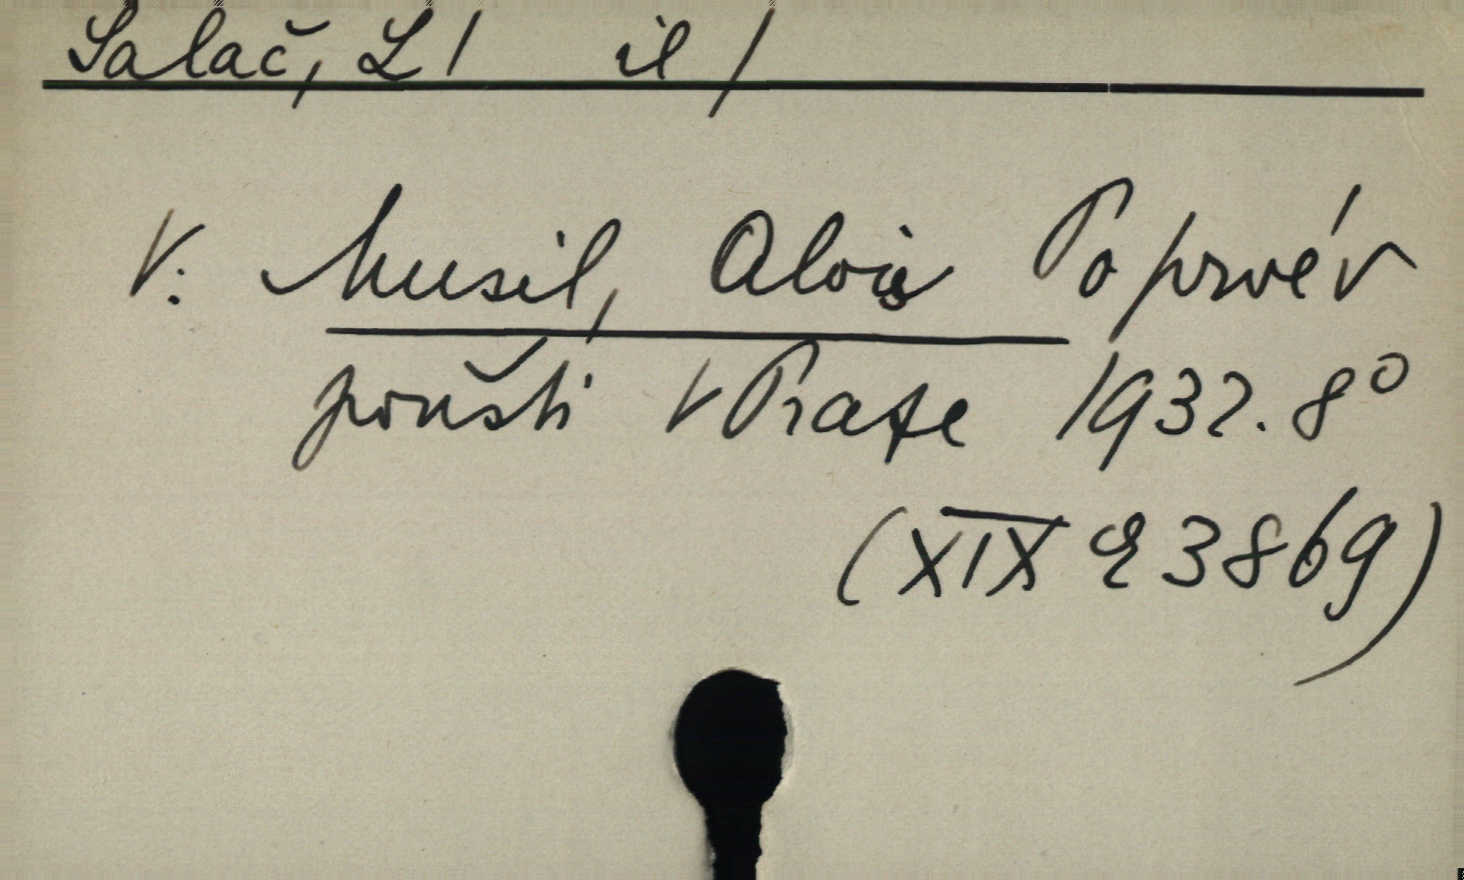 Salač, L / il /
V. Musil, Alois Poprvé v
poušti V Praze 1932. 8°
(XIX E 3869)